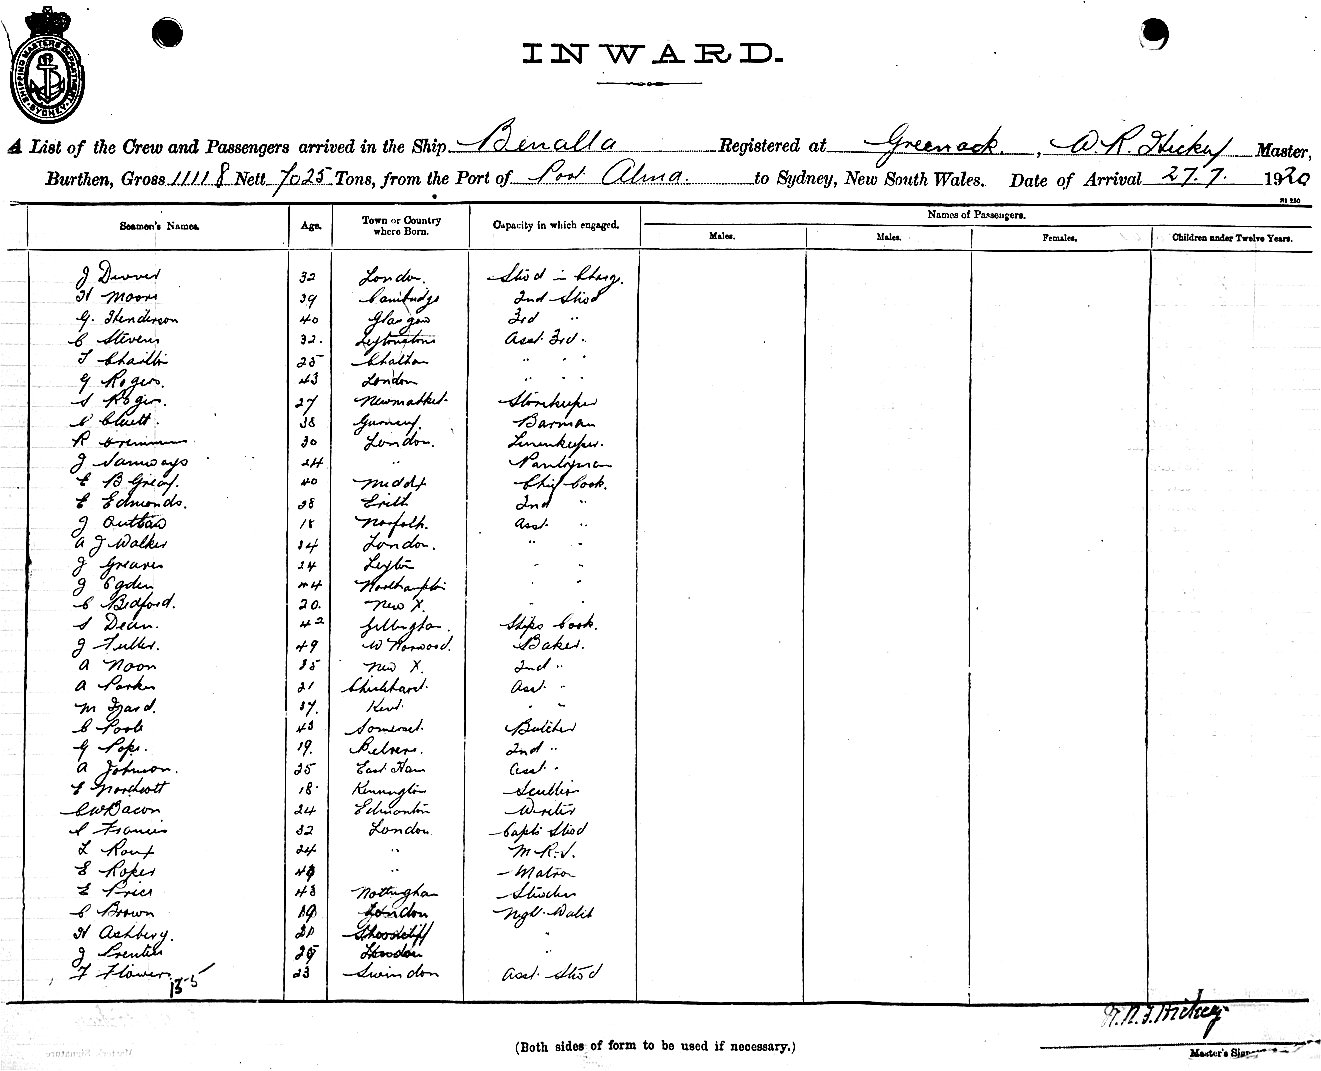 SHIPPING MASTERS DEPARTMENT SYDNEY
INWARD.
A List of the Crew and Passengers arrived in the Ship Benalla Registered at Greenock, W. R. Hickey Master,
Burthen, Gross 11118 Nett 7025 Tons, from the Port of Port Alma. to Sydney, New South Wales. Date of Arrival 27.7. 1920
Seamen's Names. Age. Town or Country where Born. Capacity in which engaged. Names of Passengers.
Males. Males. Females. Children under Twelve Years.
J 32 London. Stwd in Charge.
H Moore 39 Cambridge 2nd Stwd
G. Henderson 40 Glasgow 3rd "
C Stevens 32. Leytonstone Asst 3rd.
T 25 Chatham " " "
G Rogers. 43 London " " "
S Rogers. 27 Newmarket. Storekeeper
C Cluett. 38 Guernsey. Barman
R 30 London. Linenkeeper.
J Samways 24 " Pantryman
E B Greay. 40 Middx Chief Cook.
E Edmonds. 28 Erith 2nd "
J Outlaw 18 Norfolk. Asst "
A J Walker 34 London. " "
J Greaves 24 Leyton " "
J Ogden 44 Northampton " "
C Bedford. 20. New X. " "
S Dean. 42 Gillingham. Ships Cook.
J Fuller. 49 W Norwood. Baker.
A Noon 35 New X. 2nd "
A Parker 21 Asst "
M Izard. 37. Kent. " "
C Poole 43 Somerset. Butcher
G Pope. 19. Belvere. 2nd "
A Johnson. 25 East Ham Asst "
E Northcott 18. Kennington Scullion
C W Bacon 24 Edmonton Writer
C Francis 32 London. Capts Stwd
L Roux 24 " M.R.S.
E Roper " Matron
E Price 43 Nottingham Stwdess
C Brown 19 London Nght Watch
H Ashberry. 21 "
J Prentice 25 London "
F Flowers. 23 Swindon Asst. Stwd
135
Hickey
(Both sides of form to be used if necessary.)
Master's